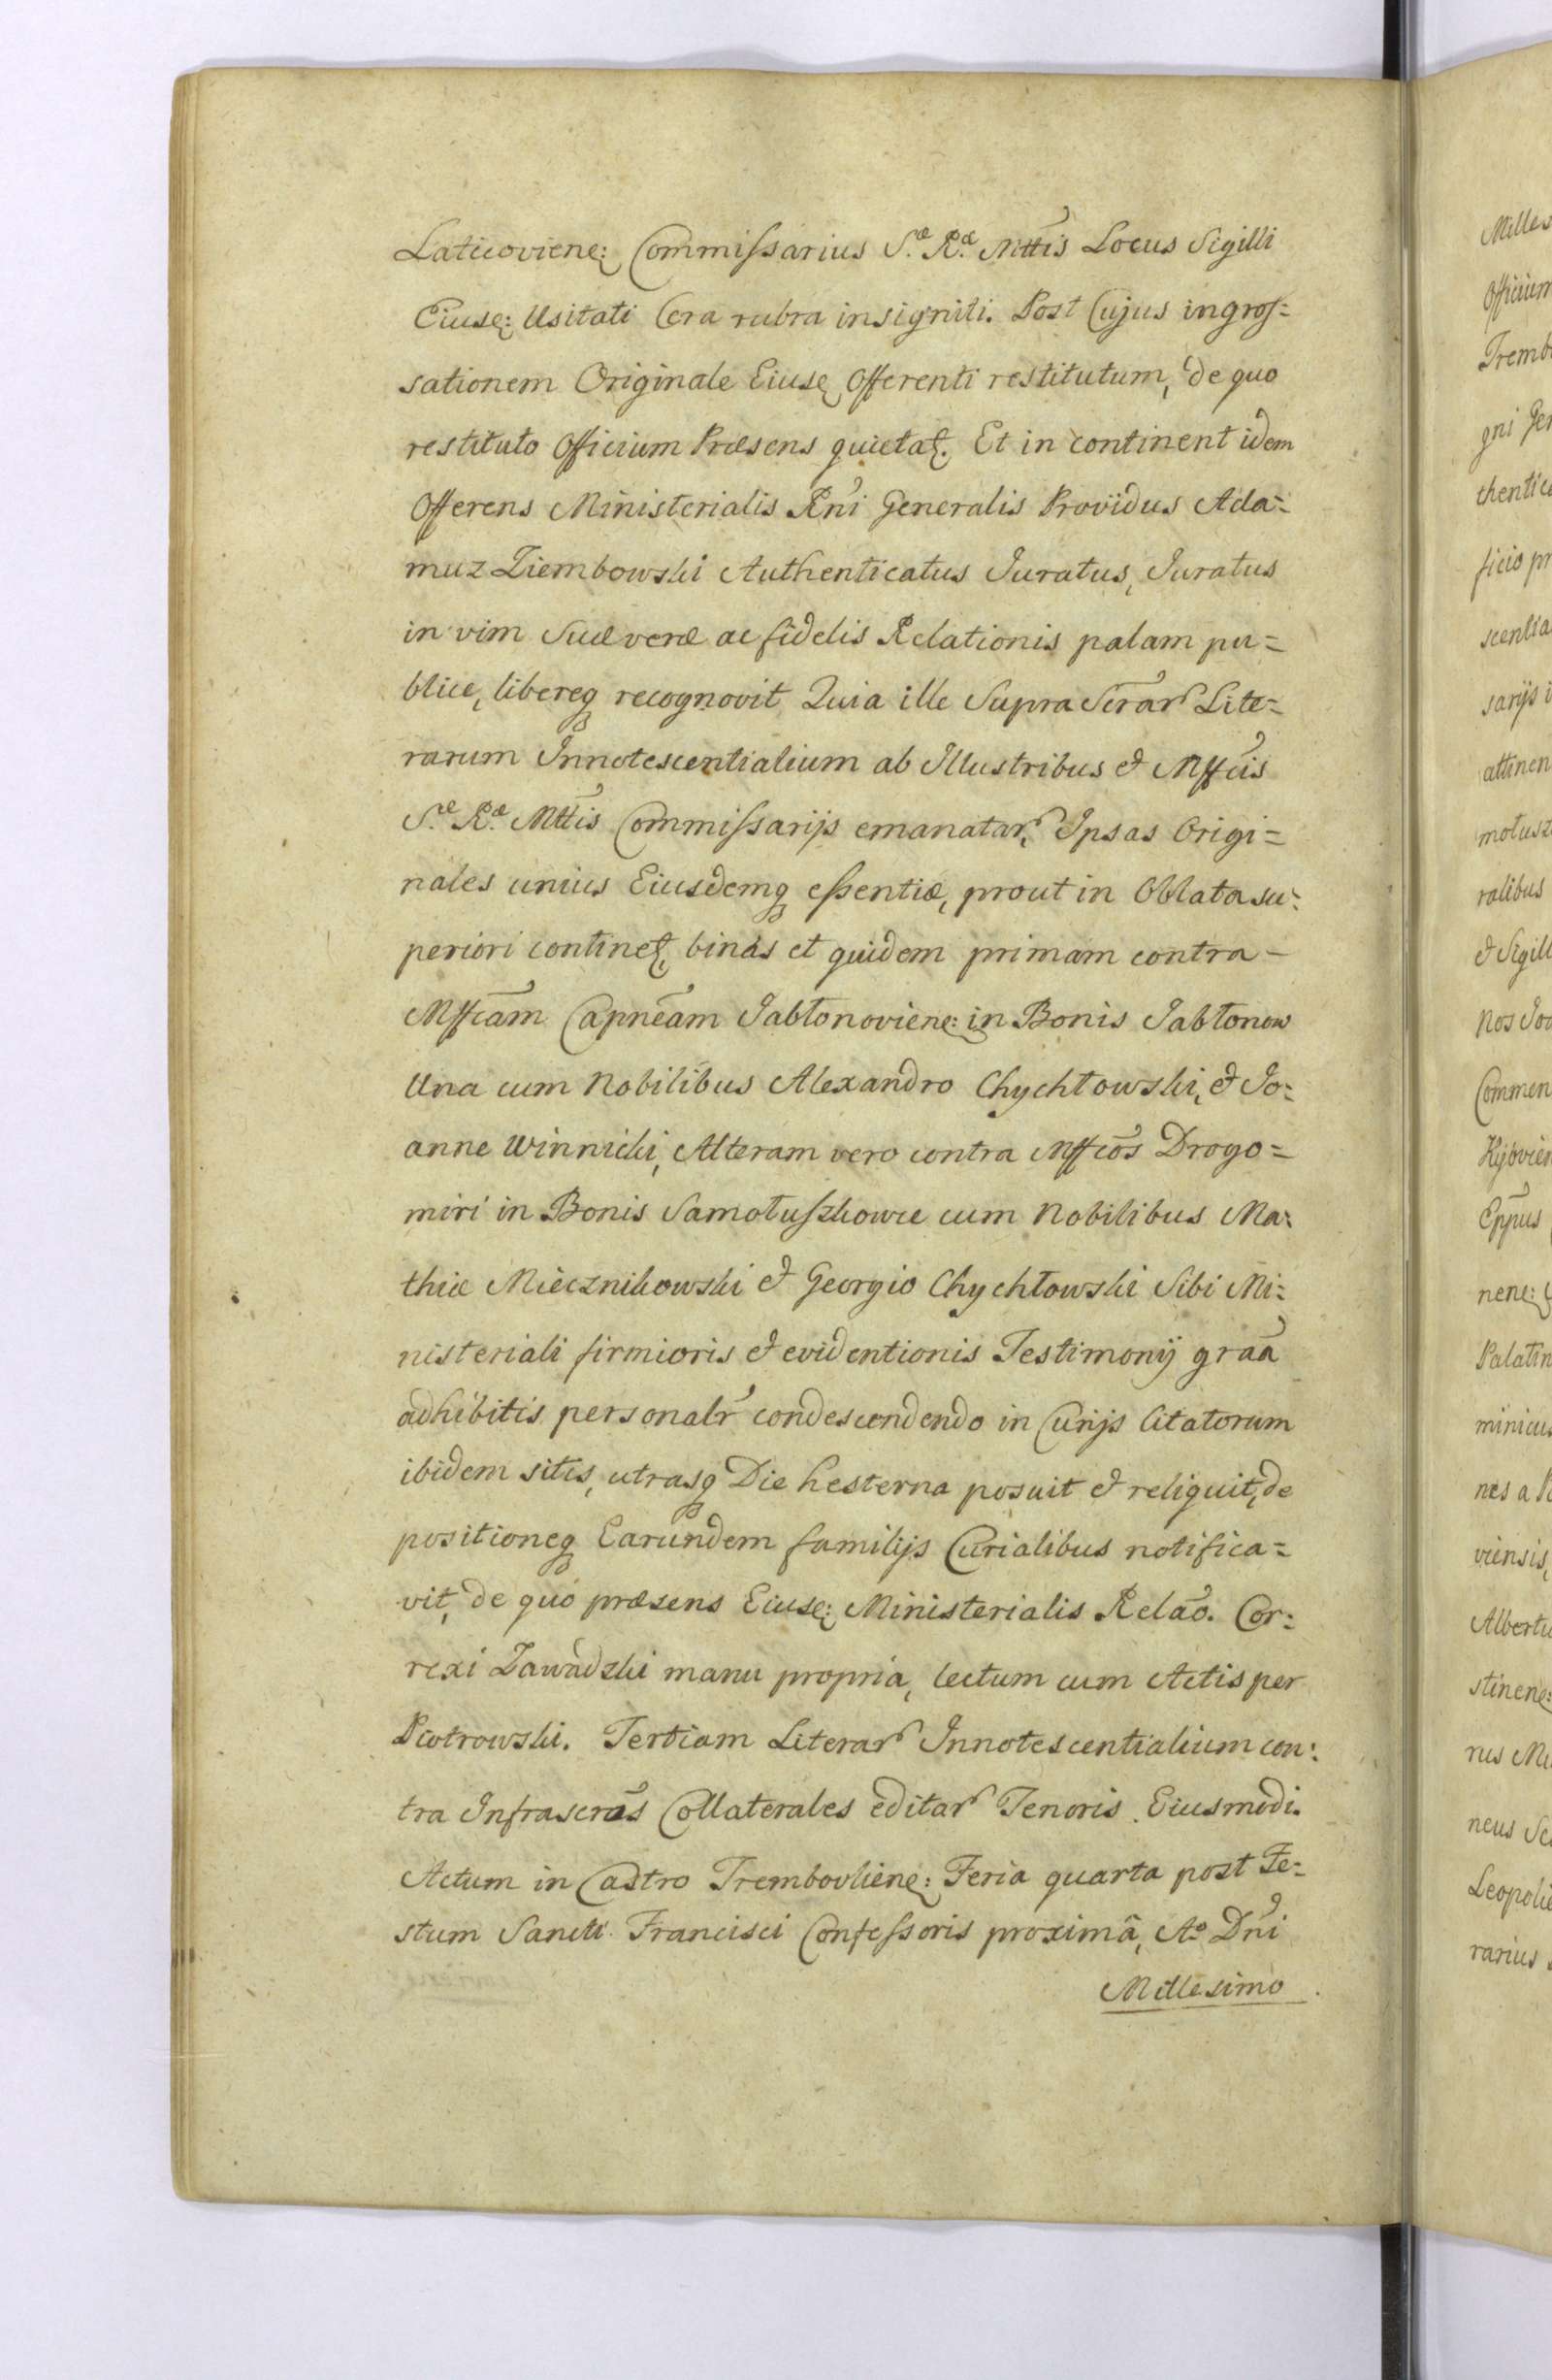 Laticoviene: Commissarius S.æ R.æ Mttis Locus Sigilli
Eiusę: Usitati Cera rubra insigniti. Post Cujus ingros=
sationem Originale Eiusę Offerenti restitutum, de quo
restituto Officium Præsens quietaꝉ. Et in continent idem
Offerens Ministerialis Rni Generalis Providus Ada=
muz Ziembowski Authenticatus Juratus, Juratus
in vim Suæ veræ ac fidelis Relationis palam pu=
blice, libereq recognovit Quia ille Supra Scrar Lite=
rarum Innotescentialium ab Illustribus & Mffcis
S.æ R.æ Mttis Commissarijs emanatar, Ipsas Origi=
nales unius Eiusdemq essentiæ, prout in Oblata su=
periori contineꝉ, binas et quidem primam contra -
Mffcam Capneam Jabłonoviene: in Bonis Jabłonow
Una cum Nobilibus Alexandro Chychłowski, & Jo=
anne Winnicki, Alteram vero contra Mffcos Drogo=
miri in Bonis Samołuszkowce cum Nobilibus Ma=
thiæ Miecznikowski & Georgio Chychłowski Sibi Mi=
nisteriali firmioris & evidentionis Testimonij graa
adhibitis personalr condescendendo in Curijs Citatorum
ibidem sitis, utrasq Die hesterna posuit & reliquit, de
positioneq Earundem familijs Curialibus notifica=
vit, de quo præsens Eiusę: Ministerialis Relao. Cor=
rexi Zawadzki manu propria, lectum cum Actis per
Piotrowski. Tertiam Literar Innotescentialium con=
tra Infrascras Collaterales editar Tenoris Eiusmodi.
Actum in Castro Trembovliene: Feria quarta post Fe=
stum Sancti Francisci Confessoris proximâ, Ao Dni
Millesimo
Officium
gni Ge
ficio pr
sarijs i
ralibus
& Sigill
Nos Jo
Commen
Eppus
nene:
Palatin
minicus
nes a
viensis,
Albertu
stinene:
rus M
neus Sc
Leopoli
rarius